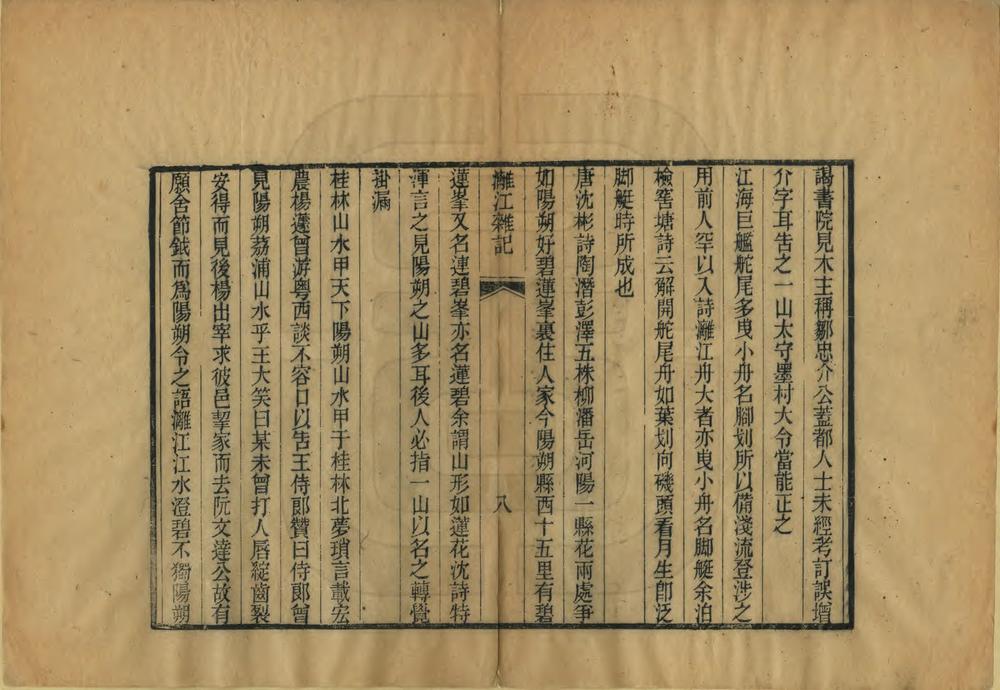 謁書院見木主稱鄒忠介公蓋都人士未經考訂誤增
介字耳告之一山太守墨村大令當能正之
江海巨艦舵尾多曳小舟名腳划所以備淺流登涉之
用前人罕以入詩灕江舟大者亦曳小舟名脚艇余泊
檢窖塘詩云解開舵尾舟如葉划向磯頭看月生卽泛
脚艇時所成也
唐沈彬詩陶潛彭澤五株柳潘岳河陽一縣花兩處爭
如陽朔好碧蓮峯裏住人家今陽朔縣西十五里有碧
灕江雜記
八
蓮峯又名連碧峯亦名蓮碧余謂山形如蓮花沈詩特
渾言之見陽朔之山多耳後人必指一山以名之轉覺
掛漏
桂林山水甲天下陽朔山水甲于桂林北夢瑣言載宏
農楊蘧曾游粵西談不容口以告王侍郎贊曰侍郎曾
見陽朔荔浦山水乎王大笑曰某未曾打人唇綻齒裂
安得而見後楊出宰求彼邑挈家而去阮文達公故有
願舍節鉞而爲陽朔令之語灕江江水澄碧不獨陽朔